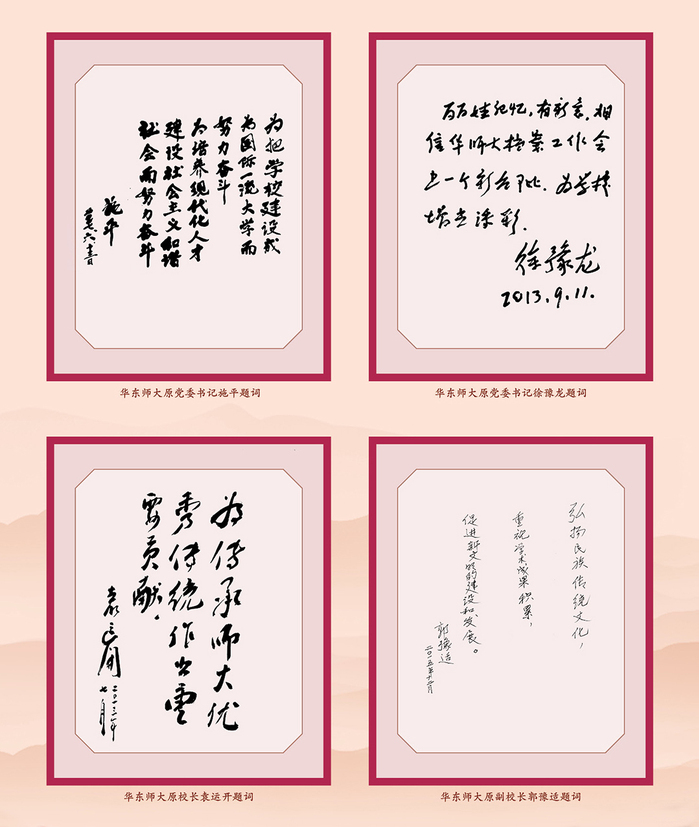 为把学校建设成
为国际一流大学而
努力奋斗
为培养现代化人才
建设社会主义和谐
社会而努力奋斗
施平
华东师大原党委书记施平题词
有新意,相
信华师大档案工作会
上一个新台阶,为学校
增光添彩.
徐豫龙
2013.9.11.
华东师大原党委书记徐豫龙题词
为传承师大优
秀传统作出重
要贡献.
袁运开
二〇一三年
七月
华东师大原校长袁运开题词
弘扬民族传统文化,
重视学术成果积累,
促进新文明的建设和发展。
郭豫适
二〇一五年十二月
华东师大原副校长郭豫适题词